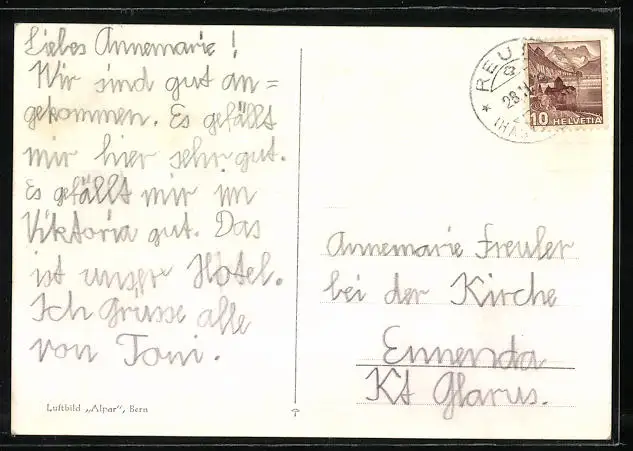 Liebes Annemarie!
Wir sind gut an=
gekommen. Es gefällt
mir hier sehr gut.
Es gefällt mir im
Viktoria gut. Das
ist unser Hotel.
Ich Grüsse alle
von Toni.
Luftbild „Alpar", Bern
REU
10 HELVETIA
Annemarie Freuler
bei der Kirche
Ennenda
Kt Glarus.